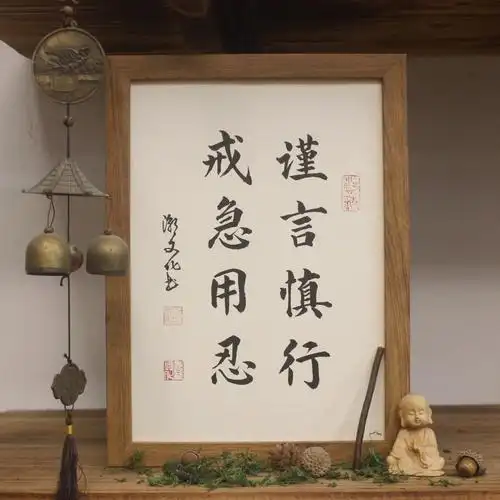 谨言慎行
戒急用忍